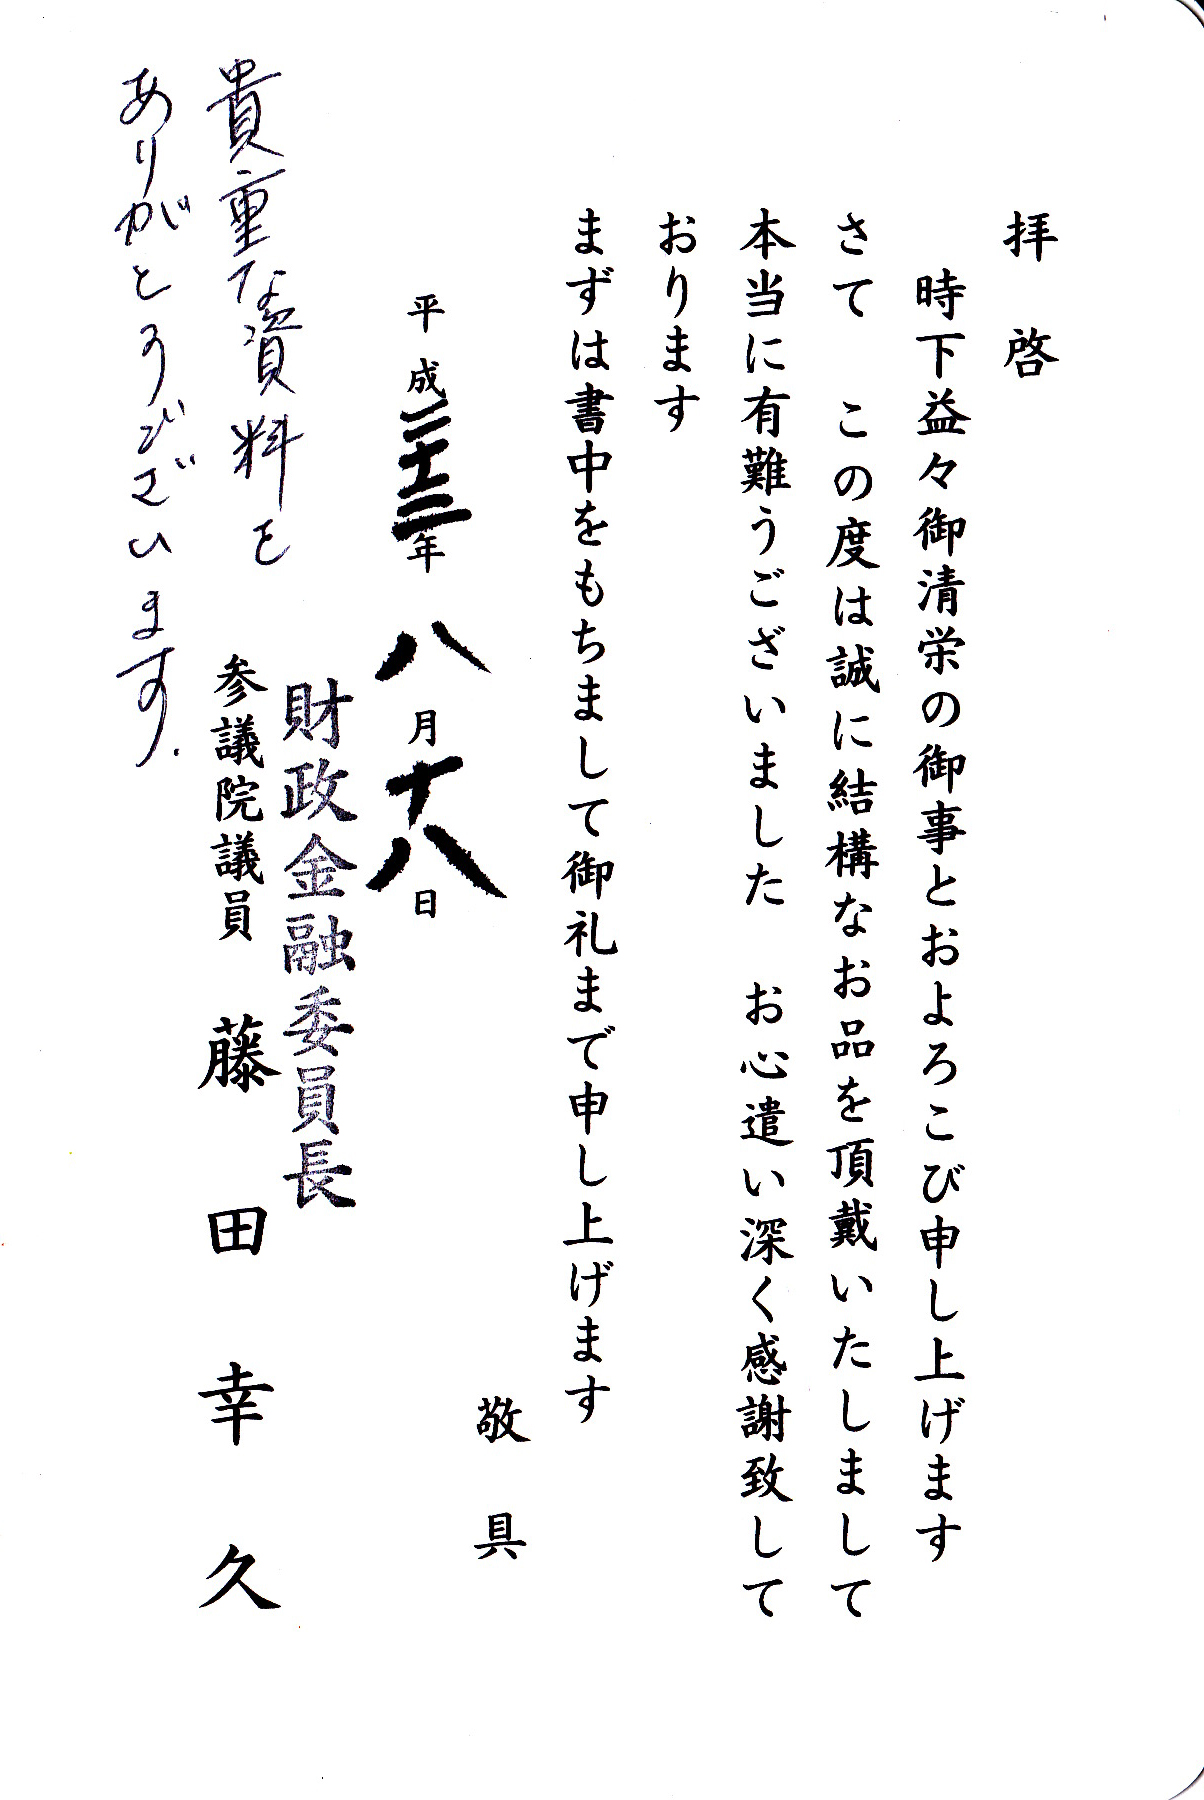 拝啓
時下益々御清栄の御事とおよろこび申し上げます
さて　この度は誠に結構なお品を頂戴いたしまして
本当に有難うございました　お心遣い深く感謝致して
おります
まずは書中をもちまして御礼まで申し上げます
敬具
平成二十三年八月十八日
財政金融委員長
参議院議員　藤田幸久
貴重な資料を
ありがとうございます.